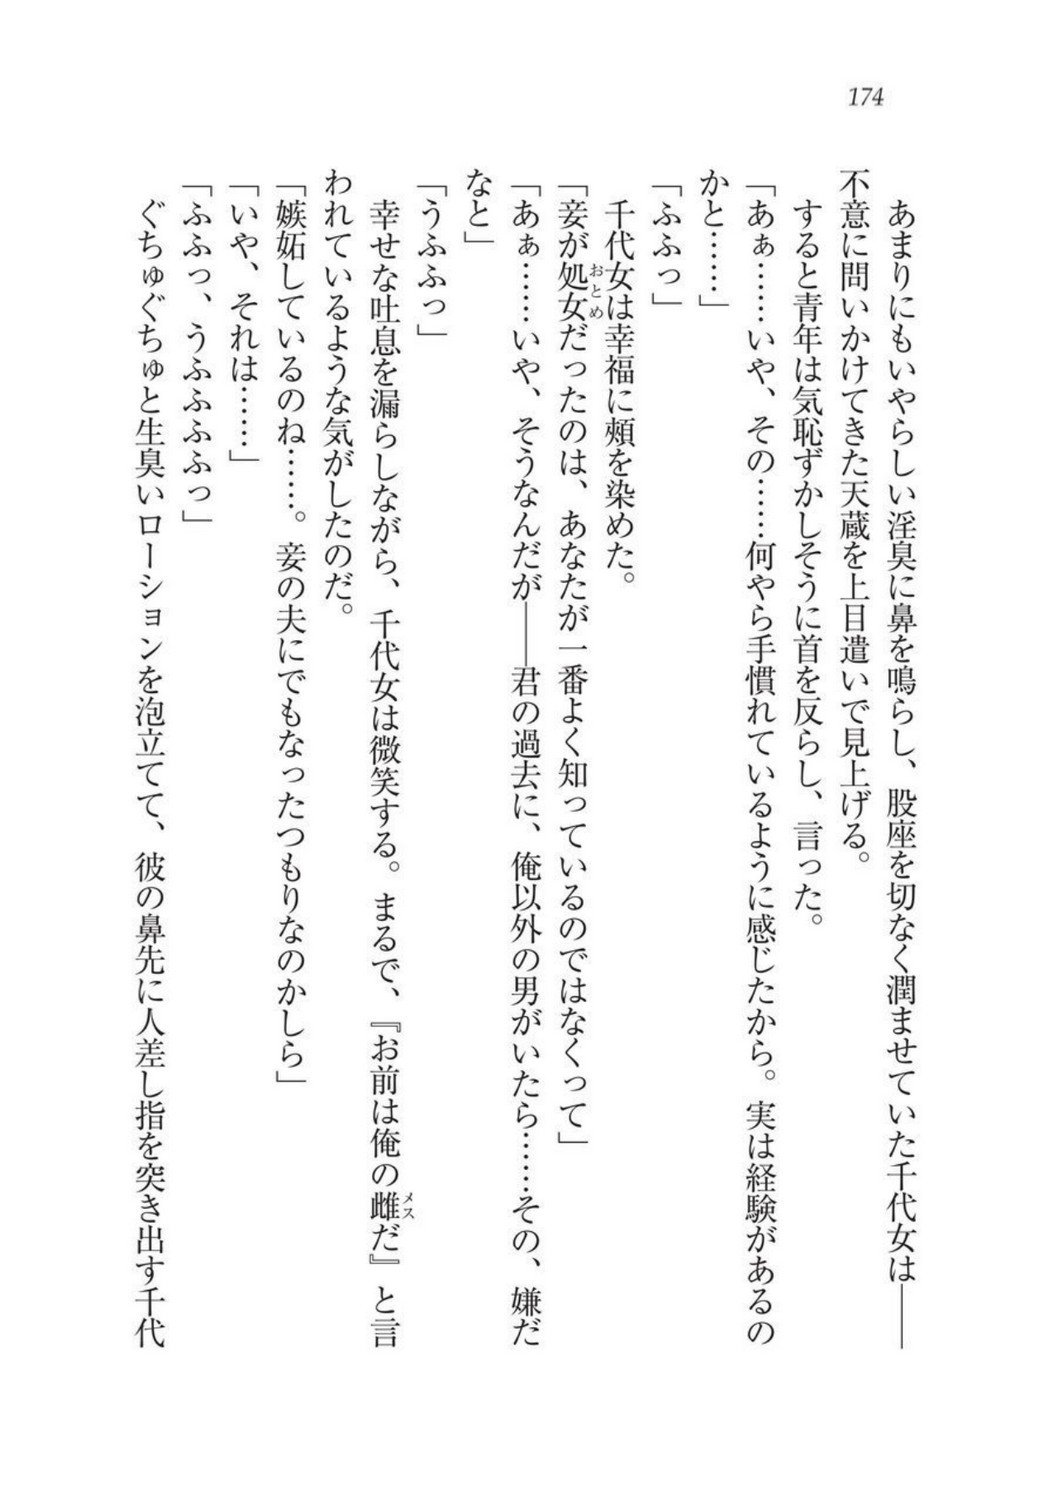 174
あまりにもいやらしい淫臭に鼻を鳴らし、股座を切なく潤ませていた千代女は――
不意に問いかけてきた天蔵を上目遣いで見上げる。
すると青年は気恥ずかしそうに首を反らし、言った。
「あぁ……いや、その……何やら手慣れているように感じたから。実は経験があるの
かと……」
「ふふっ」
千代女は幸福に頰を染めた。
「妾が処女おとめだったのは、あなたが一番よく知っているのではなくって」
「あぁ……いや、そうなんだが――君の過去に、俺以外の男がいたら……その、嫌だ
なと」
「うふふっ」
幸せな吐息を漏らしながら、千代女は微笑する。まるで、『お前は俺の雌メスだ』と言
われているような気がしたのだ。
「嫉妬しているのね……。妾の夫にでもなったつもりなのかしら」
「いや、それは……」
「ふふっ、うふふふふっ」
ぐちゅぐちゅと生臭いローションを泡立てて、彼の鼻先に人差し指を突き出す千代